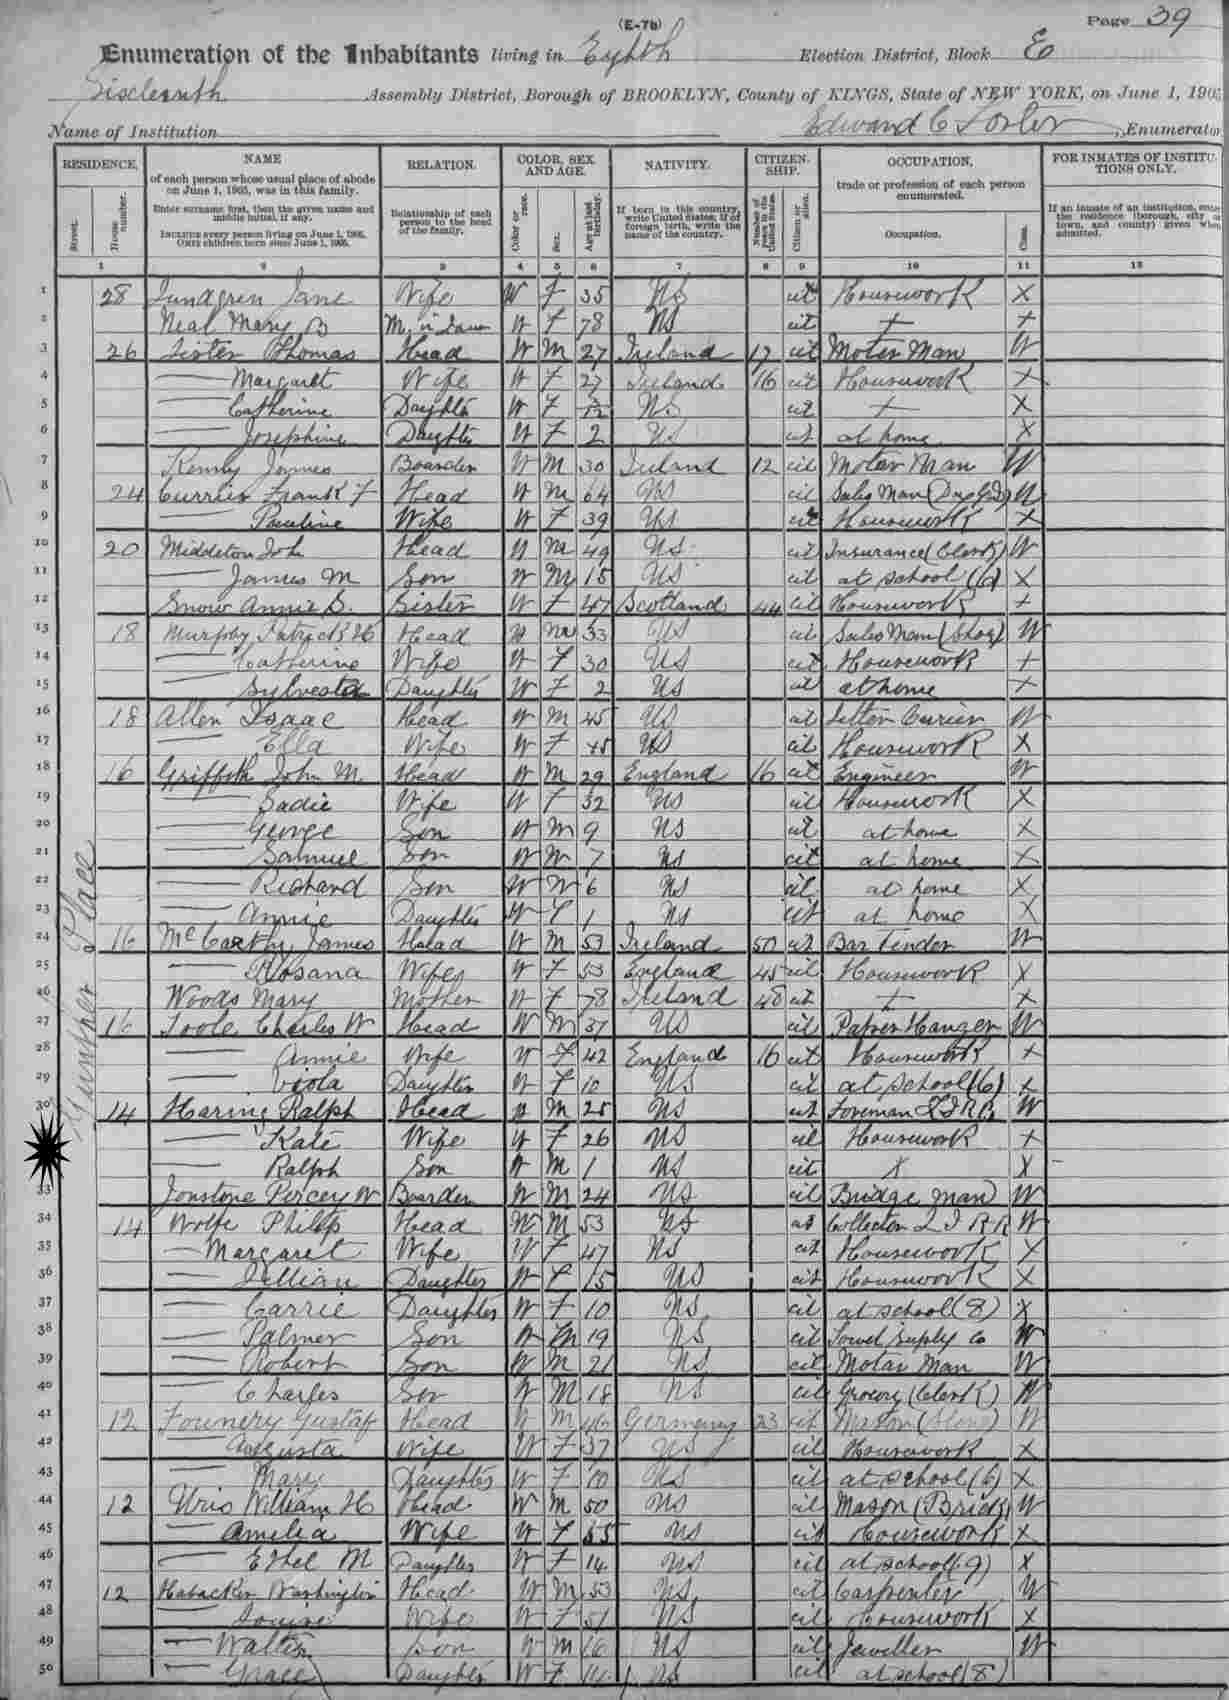 (E-7b)
Page 39
Enumeration of the Inhabitants living in Eighth Election District, Block E
Sixteenth Assembly District, Borough of BROOKLYN, County of KINGS, State of NEW YORK, on June 1, 190
Name of Institution Edward C Foster, Enumerator
RESIDENCE. NAME RELATION. COLOR, SEX AND AGE. NATIVITY. CITIZENSHIP. OCCUPATION, FOR INMATES OF INSTITUTIONS ONLY.
Street. House number. of each person whose usual place of abode on June 1, 1905, was in this family. Enter surname first, then the given name and middle initial, if any. INCLUDE every person living on June 1, 1905. OMIT children born since June 1, 1905. Relationship of each person to the head of the family. Color or race. Sex. Age at last birthday. If born in this country, write United States; if of foreign birth, write the name of the country. Number of years in the United States. Citizen or alien. trade or profession of each person enumerated. Occupation. Class. If an inmate of an institution, enter the residence (borough, city or town, and county) given when admitted.
1 2 3 4 5 6 7 8 9 10 11 12
1 28 Lundgren Jane Wife W F 35 US cit Housework X
2 Neal Mary B M in Law W F 78 US cit + +
3 26 Lister Thomas Head W M 27 Ireland 17 cit Moter Man W
4 — Margaret Wife W F 27 Ireland 16 cit Housework X
5 — Catherine Daughter W F US cit + X
6 — Josephine Daughter W F 2 US cit at home X
7 Kenny James Boarder W M 30 Ireland 12 cit Motar Man W
8 24 Currier Frank F Head W M 64 US cit Sales Man W
9 — Pauline Wife W F 39 US cit Housework X
10 20 Middleton Joh Head W M 49 US cit Insurance (Clerk) W
11 — James M Son W M 15 US cit at school X
12 Snow Annie S. Sister W F 47 Scotland 44 cit Housework +
13 18 Murphy Patrick H Head W M 33 US cit Sales Man W
14 — Catherine Wife W F 30 US cit Housework +
15 — Sylvester Daughter W F 2 US cit at home +
16 18 Allen Isaac Head W M 45 US cit Letter Currier W
17 — Ella Wife W F 45 US cit Housework X
18 16 Griffith John M. Head W M 29 England 16 cit Engineer W
19 — Sadie Wife W F 32 US cit Housework X
20 — George Son W M 9 US cit at home X
21 — Samuel Son W M 7 US cit at home X
22 — Richard Son W M 6 US cit at home X
23 — Annie Daughter W F 1 US cit at home X
24 16 McCarthy James Head W M 53 Ireland 50 cit Bar Tender W
25 — Rosana Wife W F 53 England 45 cit Housework X
26 Woods Mary Mother W F 78 Ireland 48 cit + X
27 16 Toole Charles W Head W M 37 US cit Paper Hanger W
28 — Annie Wife W F 42 England 16 cit Housework X
29 — Viola Daughter W F 10 US cit at school (6) X
30 14 Haring Ralph Head W M 25 US cit Foreman W
— Kate Wife W F 26 US cit Housework X
— Ralph Son W M 1 US cit X X
33 Jonstone Percey W Boarder W M 24 US cit Bridge Man W
34 14 Wolfe Philip Head W M 53 US cit Collector L I R R W
35 — Margaret Wife W F 47 US cit Housework X
36 — Lillian Daughter W F 15 US cit Housework X
37 — Carrie Daughter W F 10 US cit at school (8) X
38 — Palmer Son W M 19 US cit Towel Supply Co W
39 — Robert Son W M 21 US cit Motar Man W
40 — Charles Son W M 18 US cit Grocery (Clerk) W
41 12 Gustaf Head W M 46 Germany 23 cit Mason (Stone) W
42 — Augusta Wife W F 37 US cit Housework X
43 — Mary Daughter W F 10 US cit at school (6) X
44 12 Uris William H Head W M 50 US cit Mason (Brick) W
45 — Amelia Wife W F 55 US cit Housework X
46 — Ethel M Daughter W F 14 US cit at school (9) X
47 12 Habacker Washington Head W M 53 US cit Carpenter W
48 — Louise Wife W F 51 US cit Housework X
49 — Walter Son W M 16 US cit Jeweller W
50 — Grace Daughter W F 14 US cit at school (8)
Gunther Place